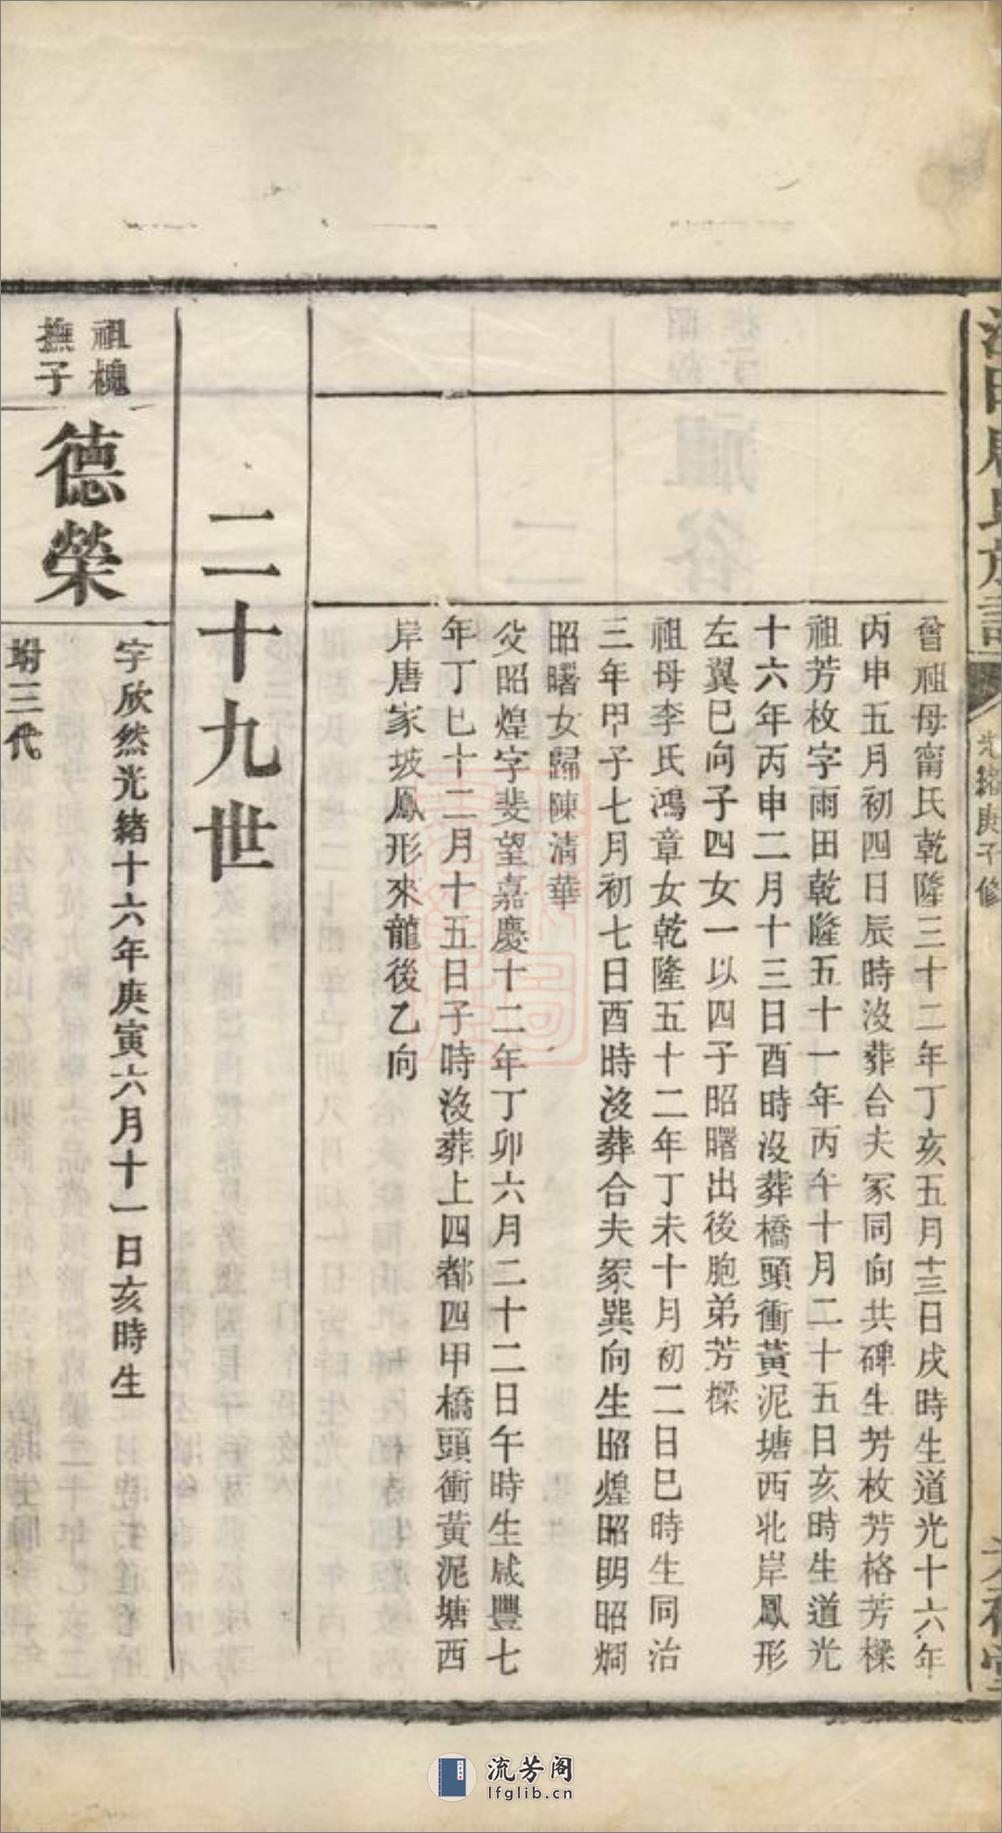 光緒庚子修
曾祖母甯氏乾隆三十二年丁亥五月十三日戌時生道光十六年
丙申五月初四日辰時沒葬合夫冢同向共碑生芳枚芳格芳樑
祖芳枚字雨田乾隆五十一年丙午十月二十五日亥時生道光
十六年丙申二月十三日酉時沒葬橋頭衝黃泥塘西北岸鳳形
左翼巳向子四女一以四子昭曙出後胞弟芳樑
祖母李氏鴻章女乾隆五十二年丁未十月初二日巳時生同治
三年甲子七月初七日酉時沒葬合夫冢巽向生昭煌昭明昭烱
昭曙女歸陳清華
父昭煌字斐望嘉慶十二年丁卯六月二十二日午時生咸豐七
年丁巳十二月十五日子時沒葬上四都四甲橋頭衝黃泥塘西
岸唐家坡鳳形來龍後乙向
二十九世
祖槐
撫子
德榮
字欣然光緒十六年庚寅六月十一日亥時生
坿三代
流芳阁
lfglib.cn